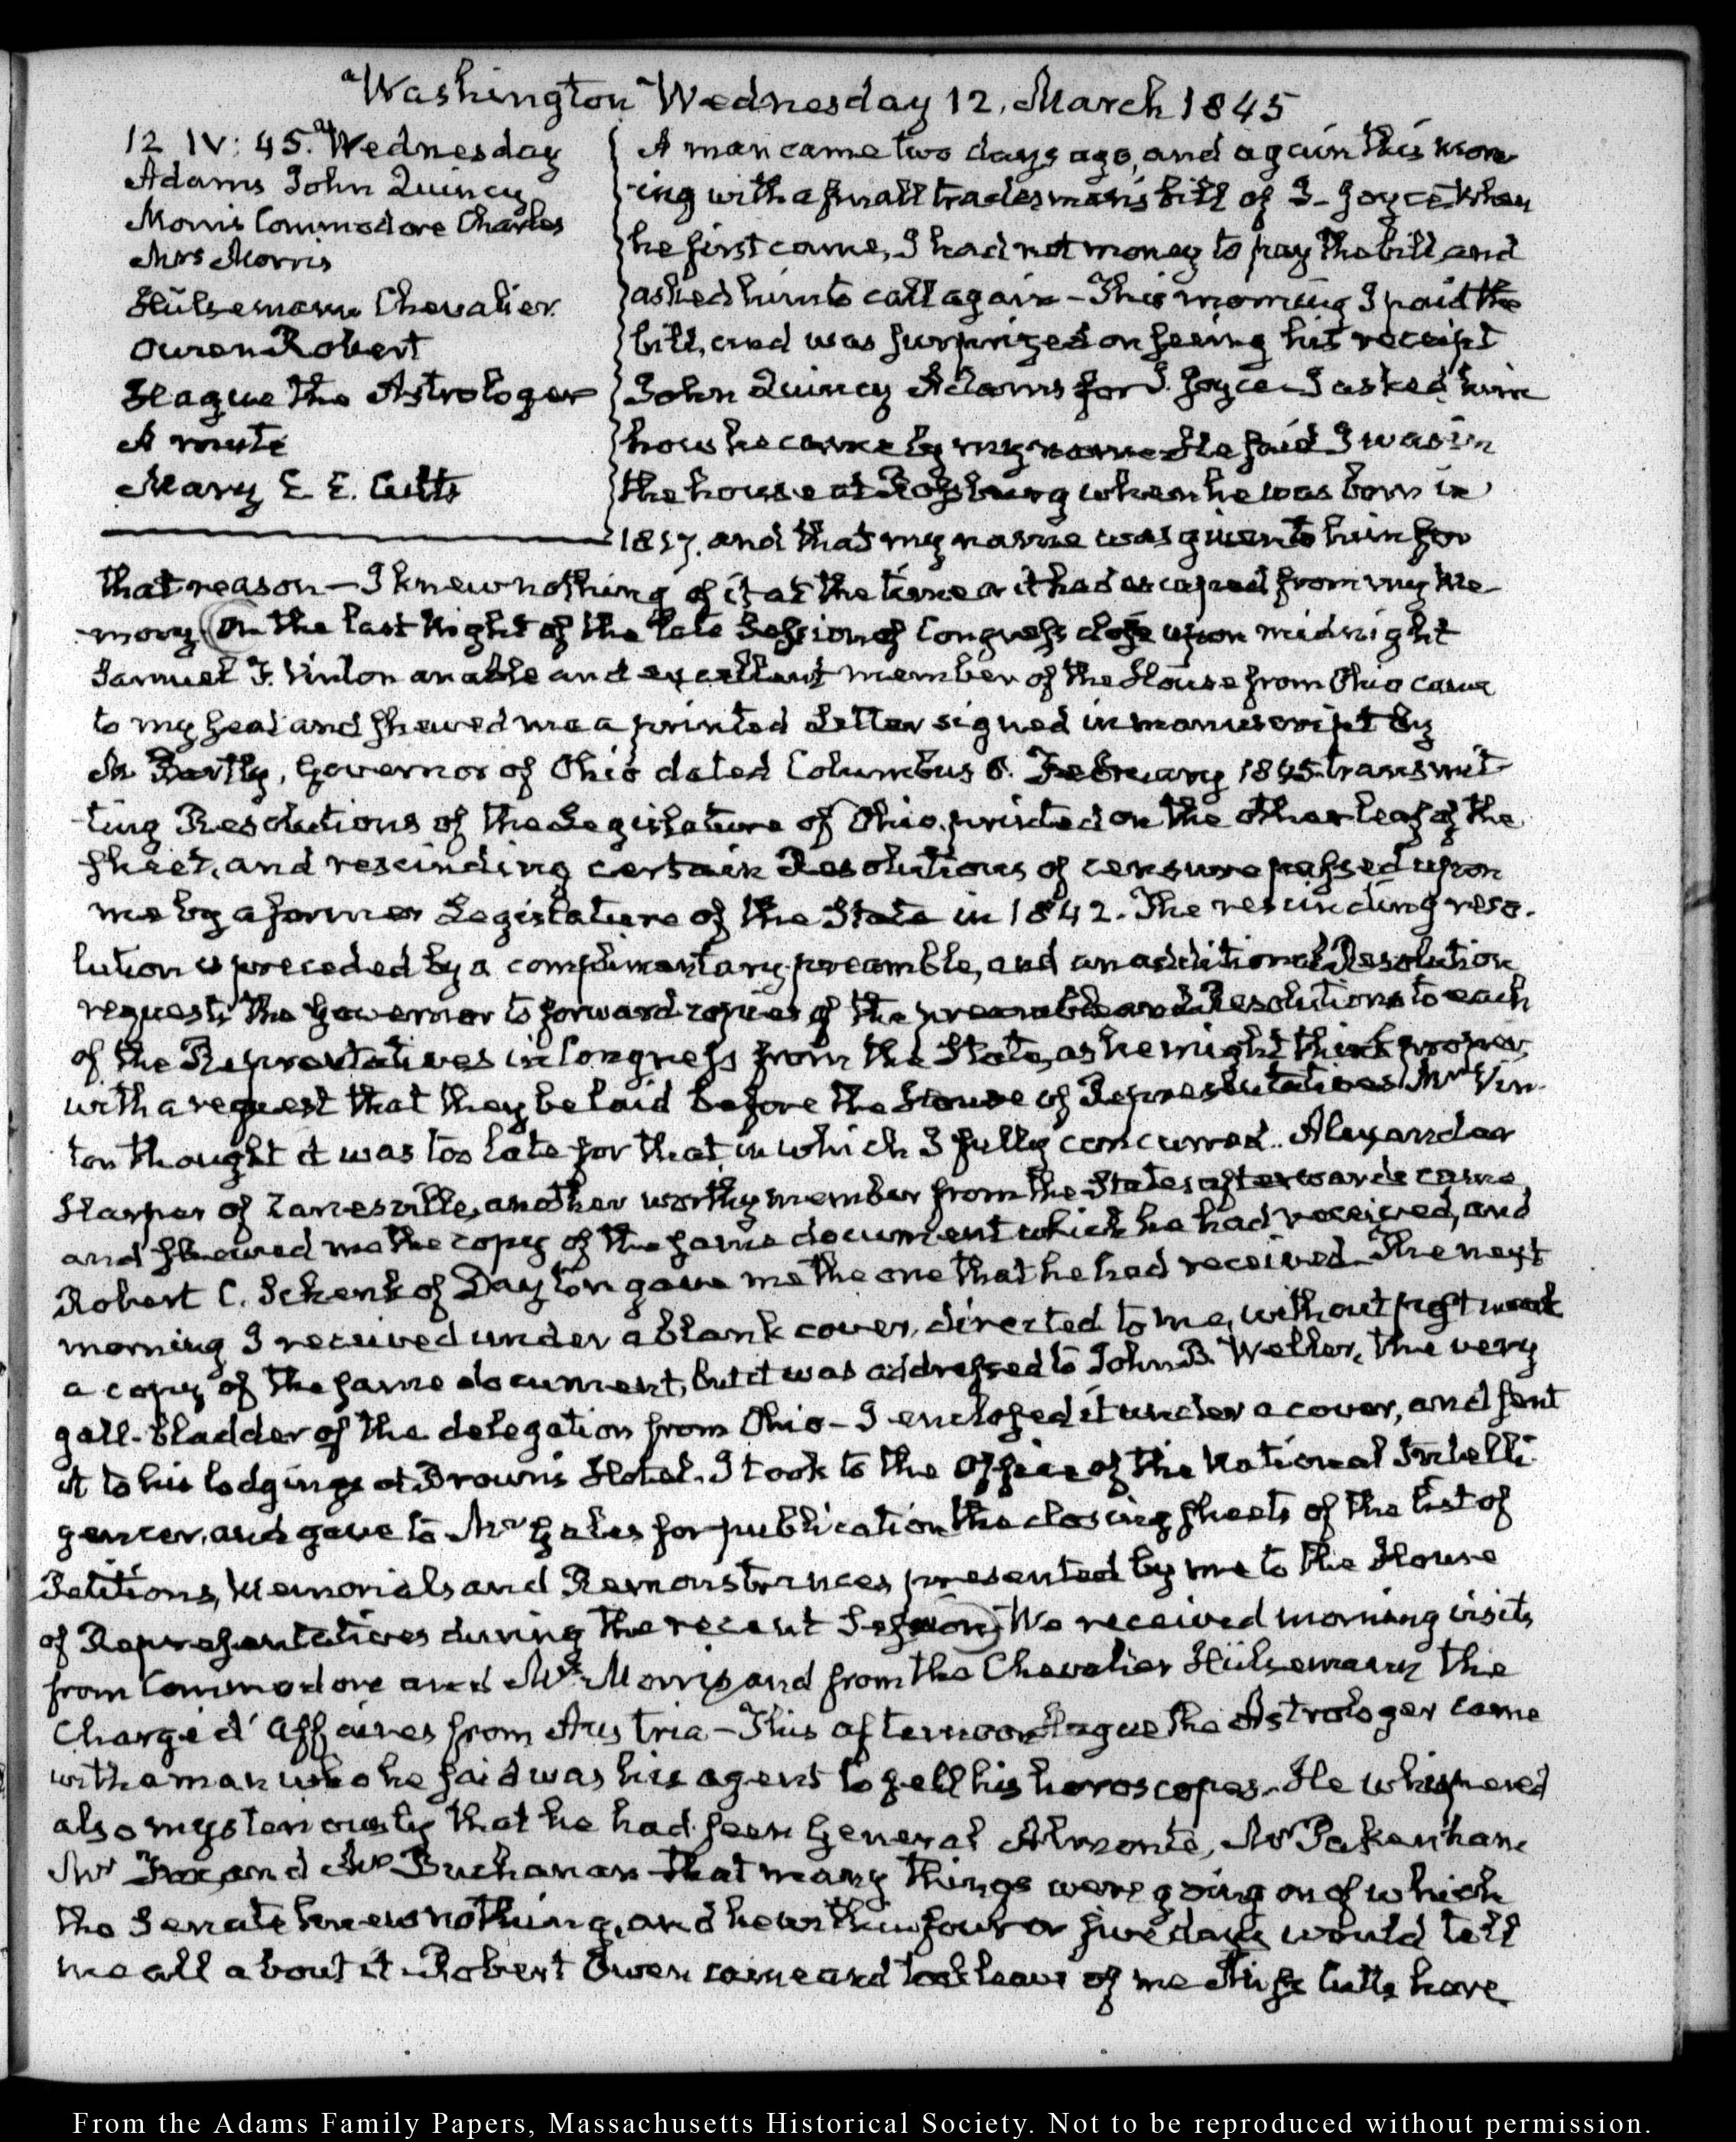 Washington Wednesday 12. March 1845
12 IV: 45. Wednesday
Adams John Quincy
Morris Commodore Charles
Mrs Morris
Hülsemann Chevalier
Owen Robert
Hague the Astrologer
A mute
Mary E. E. Cutts
A man came two days ago, and again this morn-
ing with a small tradesman's bill of J- Joyce. When
he first came, I had not money to pay the bill, and
asked him to call again - This morning I paid the
bill, and was surprized on seeing his receipt
John Quincy Adams for J. Joyce - I asked him
how he came by my name - He said I was in
the house at Roxbury when he was born in
1817. and that my name was given to him for
that reason — I knew nothing of it at the time or it had escaped from my me-
mory (On the last Night of the late Session of Congress close upon midnight
Samuel F. Vinton an able and excellent member of the House from Ohio came
to my seat and shewed me a printed Letter signed in manuscript by
M. Bartly, Governor of Ohio dated Columbus 6. February 1845. transmit-
ting Resolutions of the Legislature of Ohio, printed on the other leaf of the
sheet, and rescinding certain Resolutions of censure passed upon
me by a former Legislature of the State in 1842. The rescinding reso-
lution is preceded by a complimentary preamble, and an additional Resolution
requests the Governor to forward copies of the preamble and Resolutions to each
of the Representatives in Congress from the State, as he might think proper,
with a request that they be laid before the House of Representatives. Mr Vin-
ton thought it was too late for that, in which I fully concurred. Alexander
Harper of Zanesville, another worthy member from the State, afterwards came,
and shewed me the copy of the same document which he had received, and
Robert C. Schenk of Dayton gave me the one that he had received. The next
morning I received under a blank cover, directed to me, without post mark
a copy of the same document, but it was addressed to John B. Weller, the very
gall-bladder of the delegation from Ohio - I enclosed it under a cover, and sent
it to his lodgings at Brown's Hotel. I took to the Office of the National Intelli-
gencer, and gave to Mr Gales for publication the closing sheets of the list of
Petitions, Memorials and Remonstrances presented by me to the House
of Representatives during the recent Session) We received morning visits
from Commodore and Mrs Morris, and from the Chevalier Hülsemann the
Chargé d' Affaires from Austria - This afternoon Hague the Astrologer came
with a man who he said was his agent to sell his horoscopes. He whispered
also mysteriously that he had seen General Almonte, Mr Pakenham
Mr Fox, and Mr Buchanan - that many things were going on of which
the Senate knew nothing, and he within four or five days would tell
me all about it - Robert Owen came and took leave of me Miss Cutts here